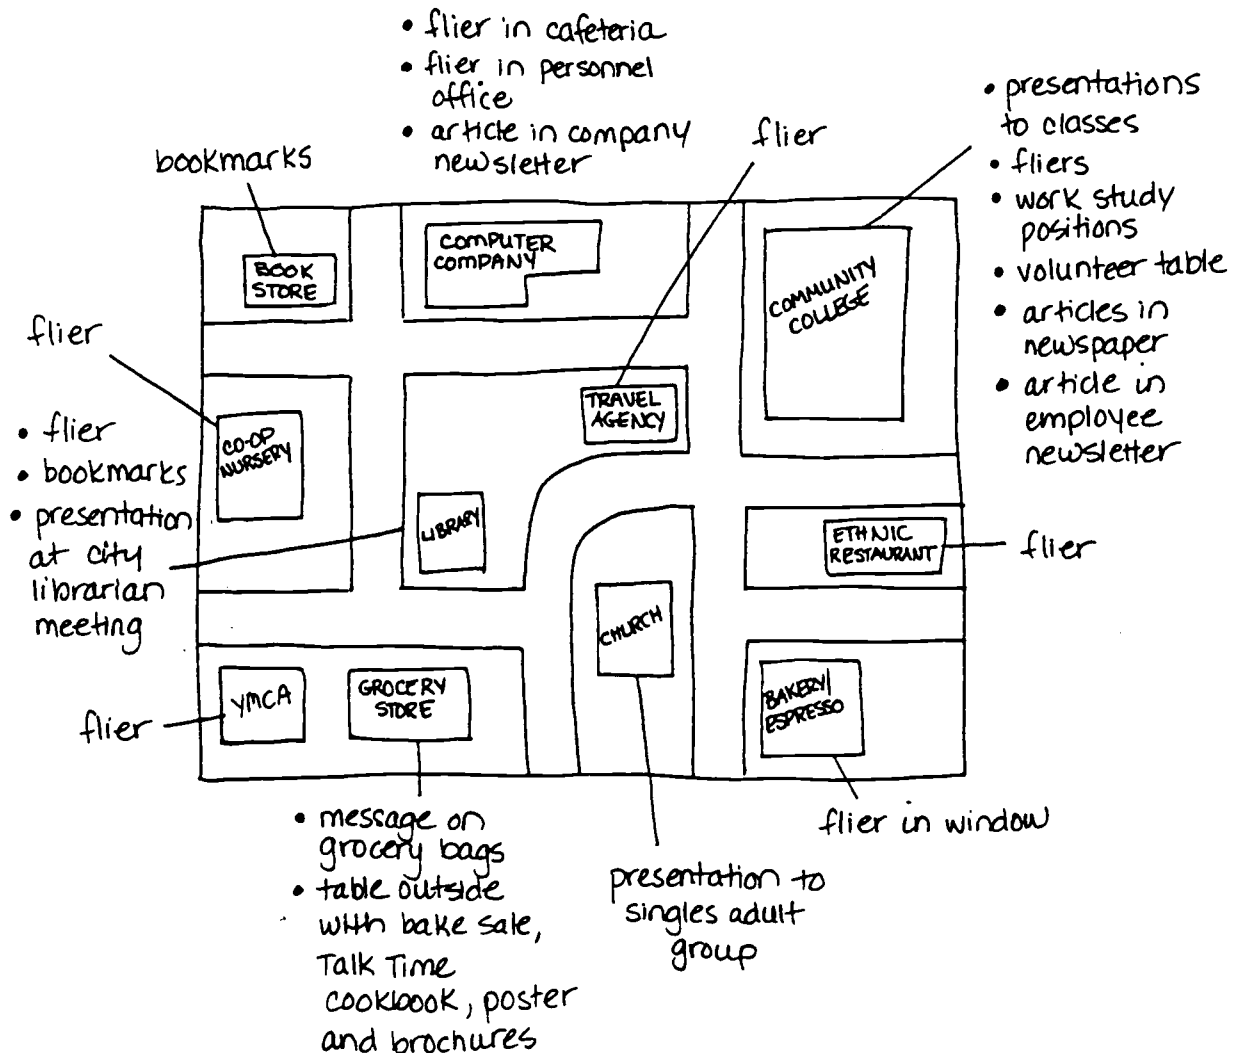 • flier in cafeteria
• flier in personnel
office
• article in company
newsletter
flier
• presentations
to classes
• fliers
• work study
positions
• volunteer table
• articles in
newspaper
• article in
employee
newsletter
bookmarks
BOOK
STORE
COMPUTER
COMPANY
COMMUNITY
COLLEGE
flier
TRAVEL
AGENCY
CO-OP
NURSERY
• flier
• bookmarks
• presentation
at city
librarian
meeting
LIBRARY
ETHNIC
RESTAURANT
flier
CHURCH
YMCA
GROCERY
STORE
BAKERY/
ESPRESSO
flier
• message on
grocery bags
• table outside
with bake sale,
Talk Time
cookbook, poster
and brochures
presentation to
singles adult
group
flier in window